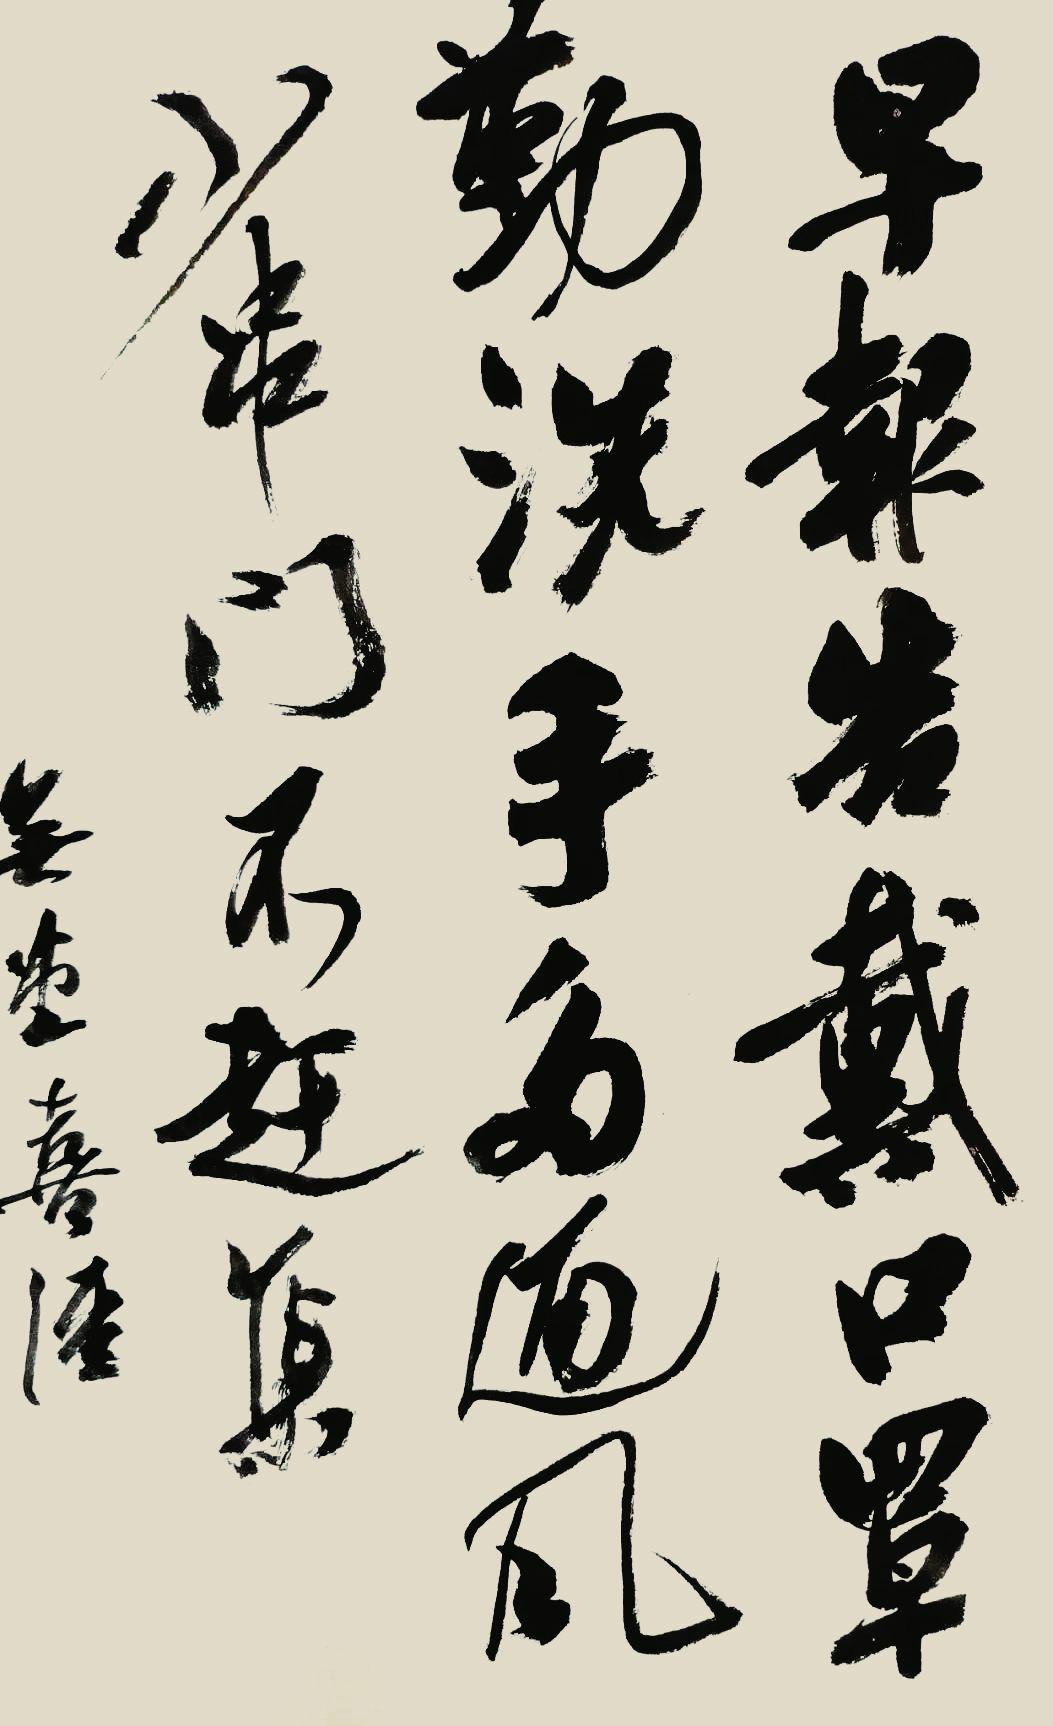 早報告戴口罩
勤洗手多通風
少串門不趕集
喜清